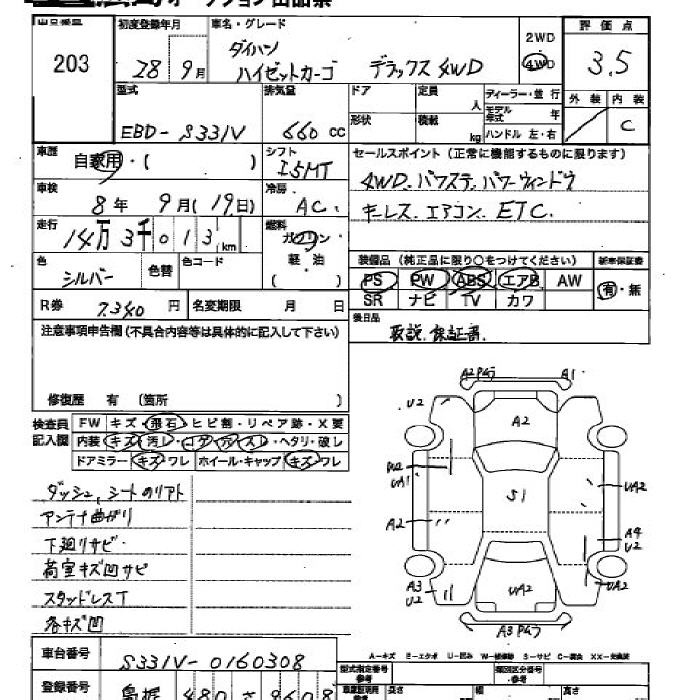 オークション出品票
出品番号 初度登録年月 車名・グレード 2WD 評価点
203 28 9月 ダイハツ
ハイゼットカーゴ デラックス4WD 4WD 3.5
型式 排気量 ドア 定員 人 ディーラー・並行 外装 内装
EBD-S331V 660cc 形状 積載 kg モデル年式 年 C
ハンドル 左・右
車歴 自家用・( ) シフト I5MT セールスポイント(正常に機能するものに限ります)
車検 8年 9月(19日) 冷房 AC. 4WD. パワステ. パワーウィンドウ
走行 14万3千013km 燃料 ガソリン キーレス. エアコン. ETC.
軽・油
( )
色 シルバー 色替 色コード 装備品(純正品に限り○をつけてください) 新車保証書
PS PW ABS エアB AW 有・無
SR ナビ TV カワ
R券 7340円 名変期限 月 日 後日品
取説. 保証書.
注意事項申告欄(不具合内容等は具体的に記入して下さい)
修復歴 有(箇所 )
検査員 FW キズ・飛石・ヒビ割・リペア跡・X要
記入欄 内装・キズ・汚レ・コゲ・穴・スレ・ヘタリ・破レ
ドアミラー キズ・ワレ ホイール・キャップ キズ・ワレ
ダッシュ, シートのリアト
アンテナ曲がり
下廻りサビ
荷室キズ凹サビ
スタッドレスT
各キズ凹
A2 PGワ A1
U2
A2
W2
UA1
S1
UA2
A2
A4
U2
A3
U2
UA2
UA2
A3 PGワ
A-キズ E-エクボ U-凹み W-補修跡 S-サビ C-腐食 XX-交換済
車台番号 S331V-0160308
型式指定番号 参考 類別区分番号 参考
登録番号 島根 480 さ 9608
長さ 幅 高さ